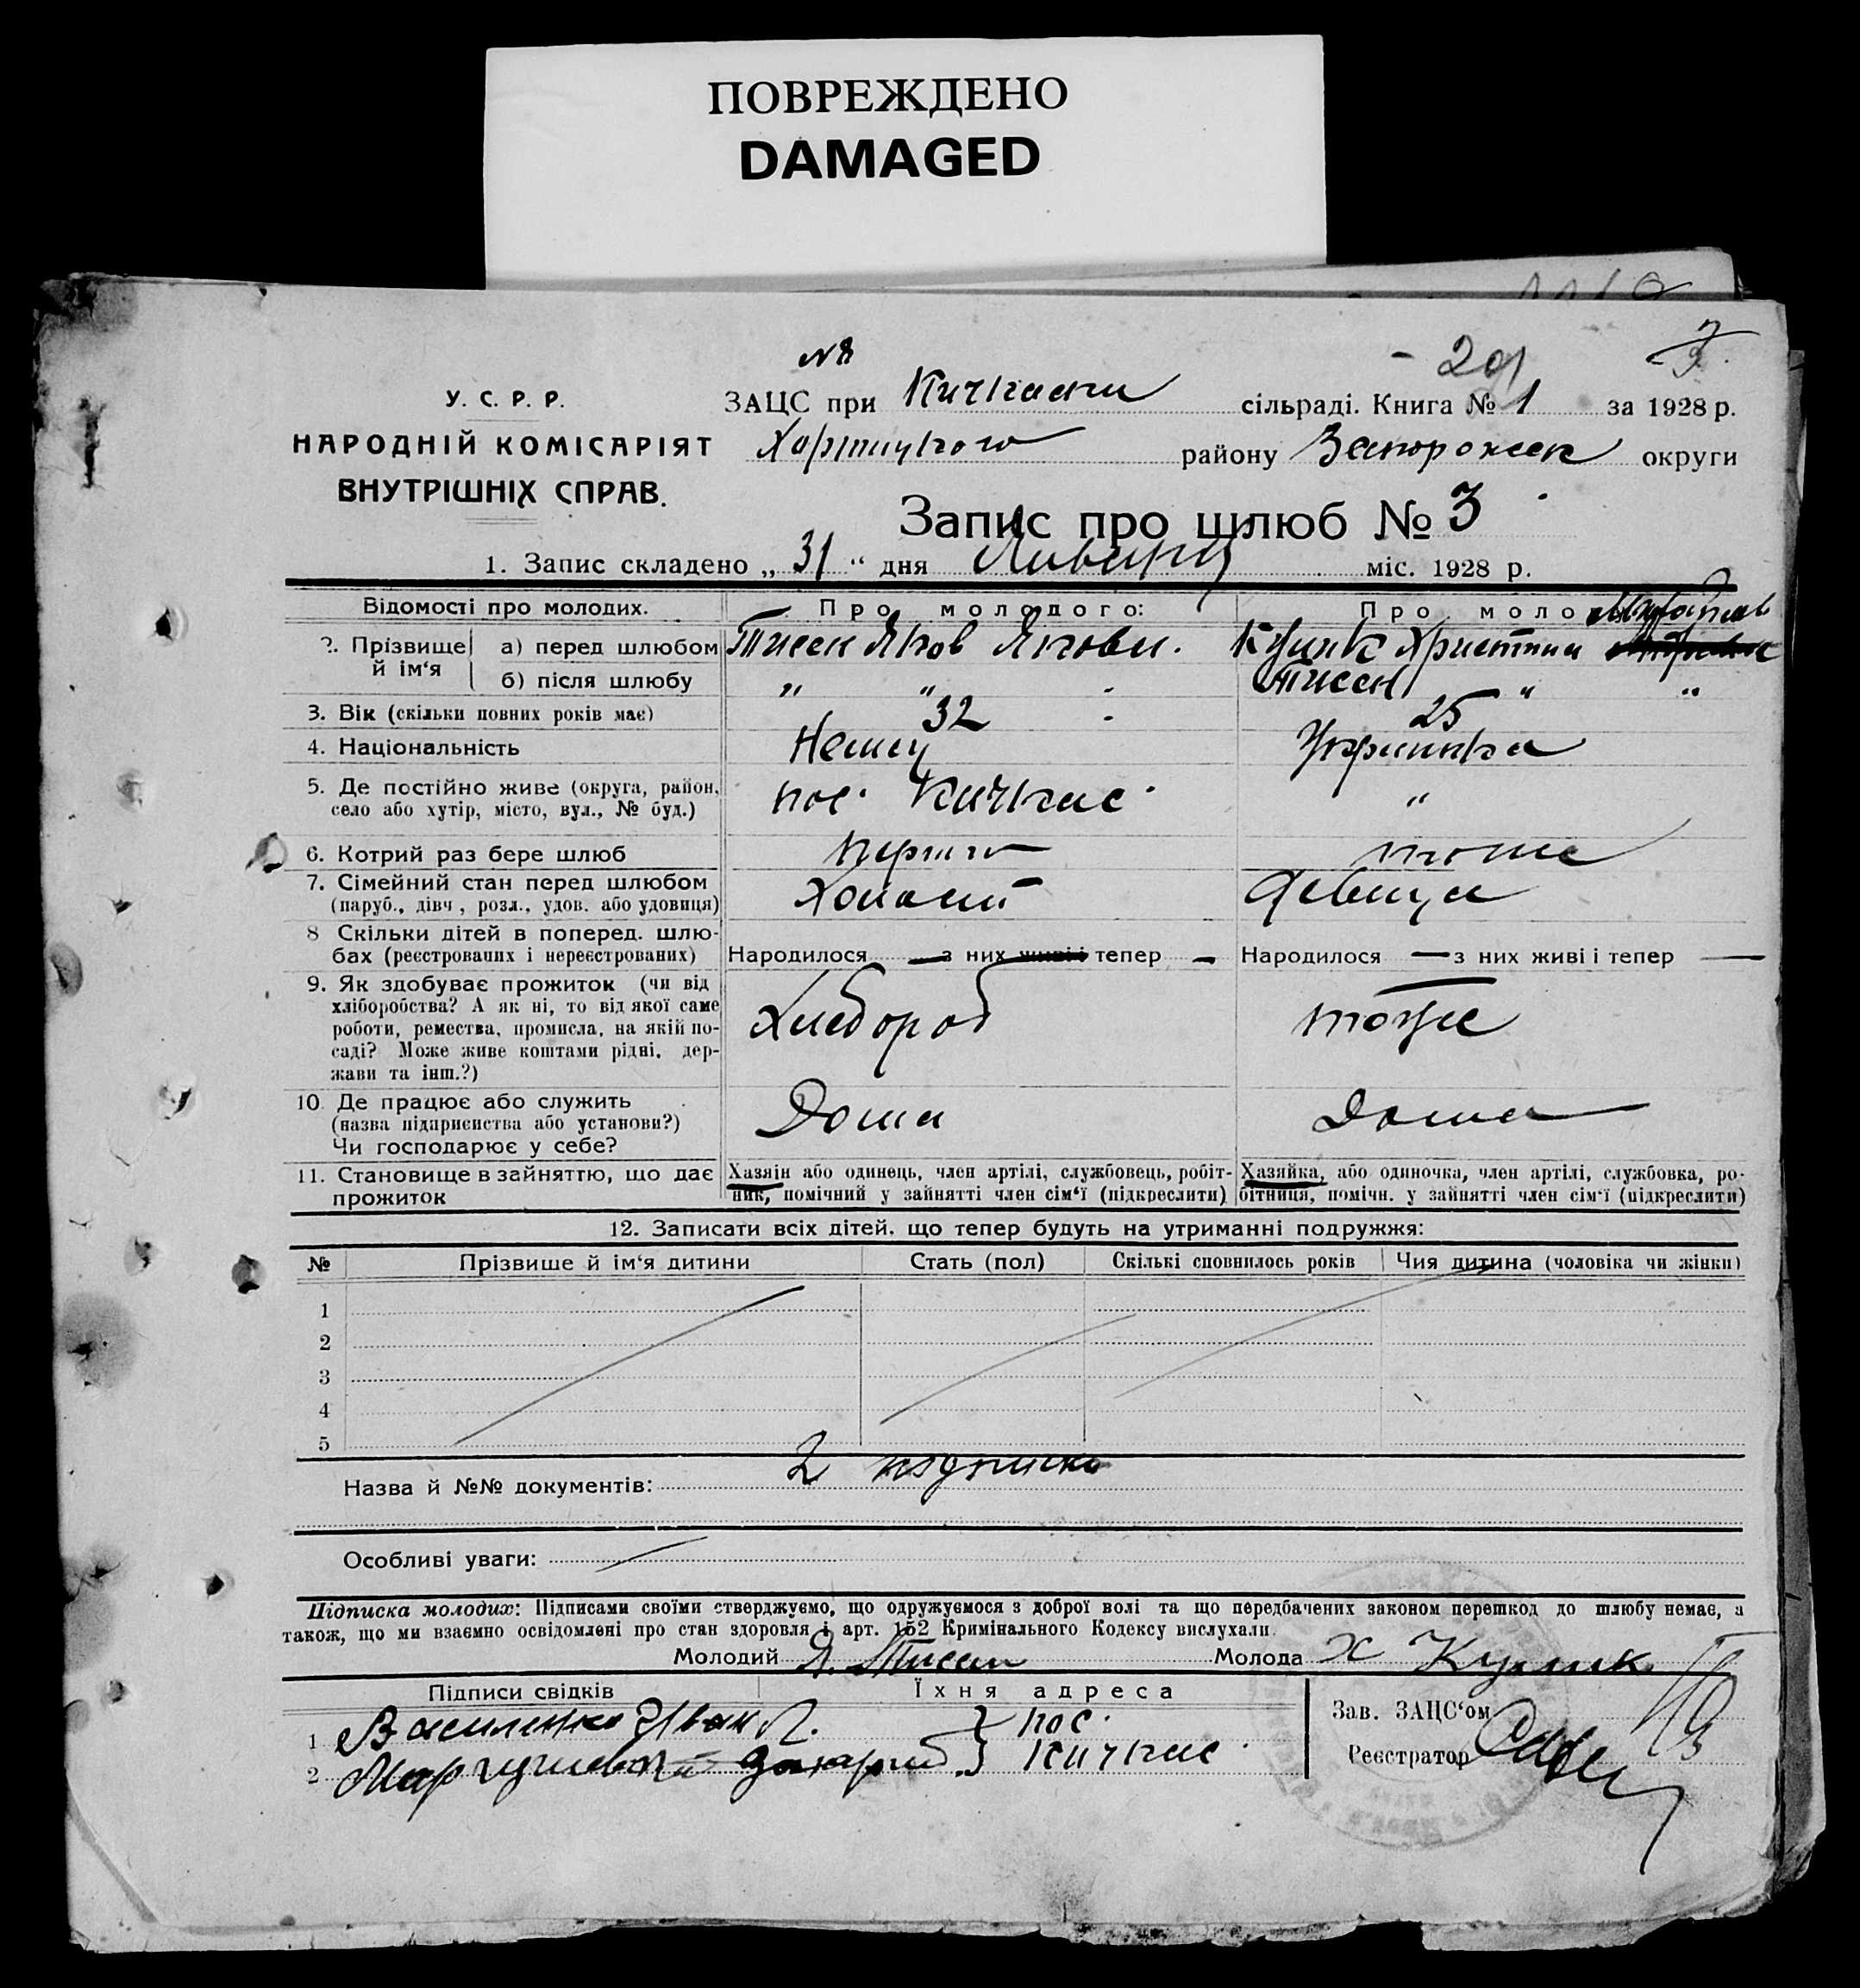 ПОВРЕЖДЕНО
DAMAGED
№ 8
У. С. Р. Р.
НАРОДНІЙ КОМІСАРІЯТ
ВНУТРІШНІХ СПРАВ.
ЗАЦС при Кичкаски сільраді. Книга № 1 за 1928 р.
Хортицкого района Запорожск округи
Запис про шлюб № 3
1. Запис складено „31“ дня Января міс. 1928 р.
Відомості про молодих. Про молодого: Про моло
2. Прізвище й ім‘я
а) перед шлюбом Тиссен Яков Якови. Кулик Христина
б) після шлюбу " " Тиссен " "
3. Вік (скільки повних років має) 32 25
4. Національність Немец Украинка
5. Де постійно живе (округа, район, село або хутір, місто, вул., № буд.) пос. Кичкас "
6. Котрий раз бере шлюб первый тоже
7. Сімейний стан перед шлюбом (паруб., дівч., розл., удов. або удовиця) Холост Девица
8 Скільки дітей в поперед. шлюбах (реєстрованих і нереєстрованих) Народилося — з них живі і тепер — Народилося — з них живі і тепер —
9. Як здобуває прожиток (чи від хліборобства? А як ні, то від якої саме роботи, ремества, промисла, на якій посаді? Може живе коштами рідні, держави та інш.?) Хлебороб тоже
10. Де працює або служить (назва підприєнства або установи?) Чи господарює у себе? Дома Дома
11. Становище в зайняттю, що дає прожиток
Хазяін або одинець, член артілі, службовець, робітник, помічний у зайнятті член сім‘ї (підкреслити)
Хазяйка, або одиночка, член артілі, службовка, робітниця, помічн. у зайнятті член сім‘ї (підкреслити)
12. Записати всіх дітей, що тепер будуть на утриманні подружжя:
№ Прізвише й ім‘я дитини Стать (пол) Скількі сповнилось років Чия дитина (чоловіка чи жінки)
1
2
3
4
5
Назва й №№ документів: 2 подписки
Особливі уваги:
Підписка молодих: Підписами своїми стверджуємо, що одружуємося з доброї волі та що передбачених законом перешкод до шлюбу немає, а
також, що ми взаємно освідомлені про стан здоровля і арт. 152 Кримінального Кодексу вислухали.
Молодий Я. Тиссен Молода Х Кулик
Підписи свідків Їхня адреса
1 Василенко Иван П. пос.
2 Кичкас
Зав. ЗАЦС‘ом
Реєстратор